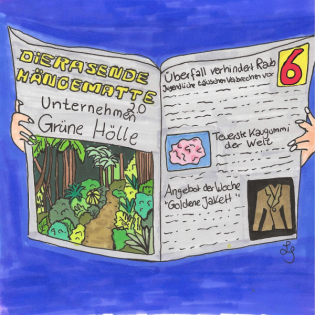 DIE RASENDE
HÄNGEMATTE
Unternehmen 20
Grüne Hölle
Überfall verhindert Raub
Jugendliche täuschen Verbrechen vor
6
Teuerste Kaugummi
der Welt
Angebot der Woche
"Goldene Jakett"